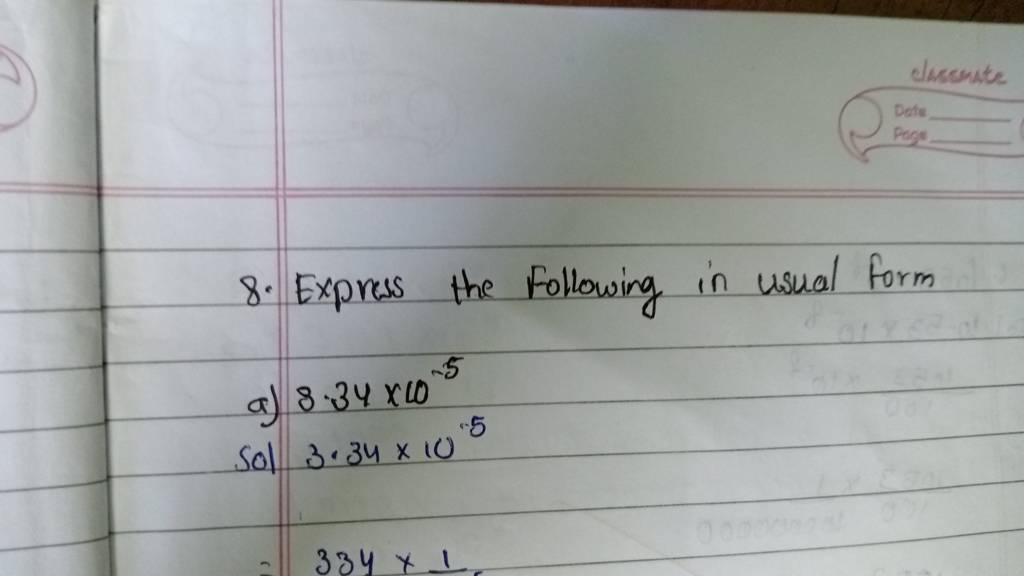 classmate
Date
Page
8. Express the Following in usual form
a) 8.34 × 10⁻⁵
Sol 3.34 × 10⁻⁵
= 334 × 1